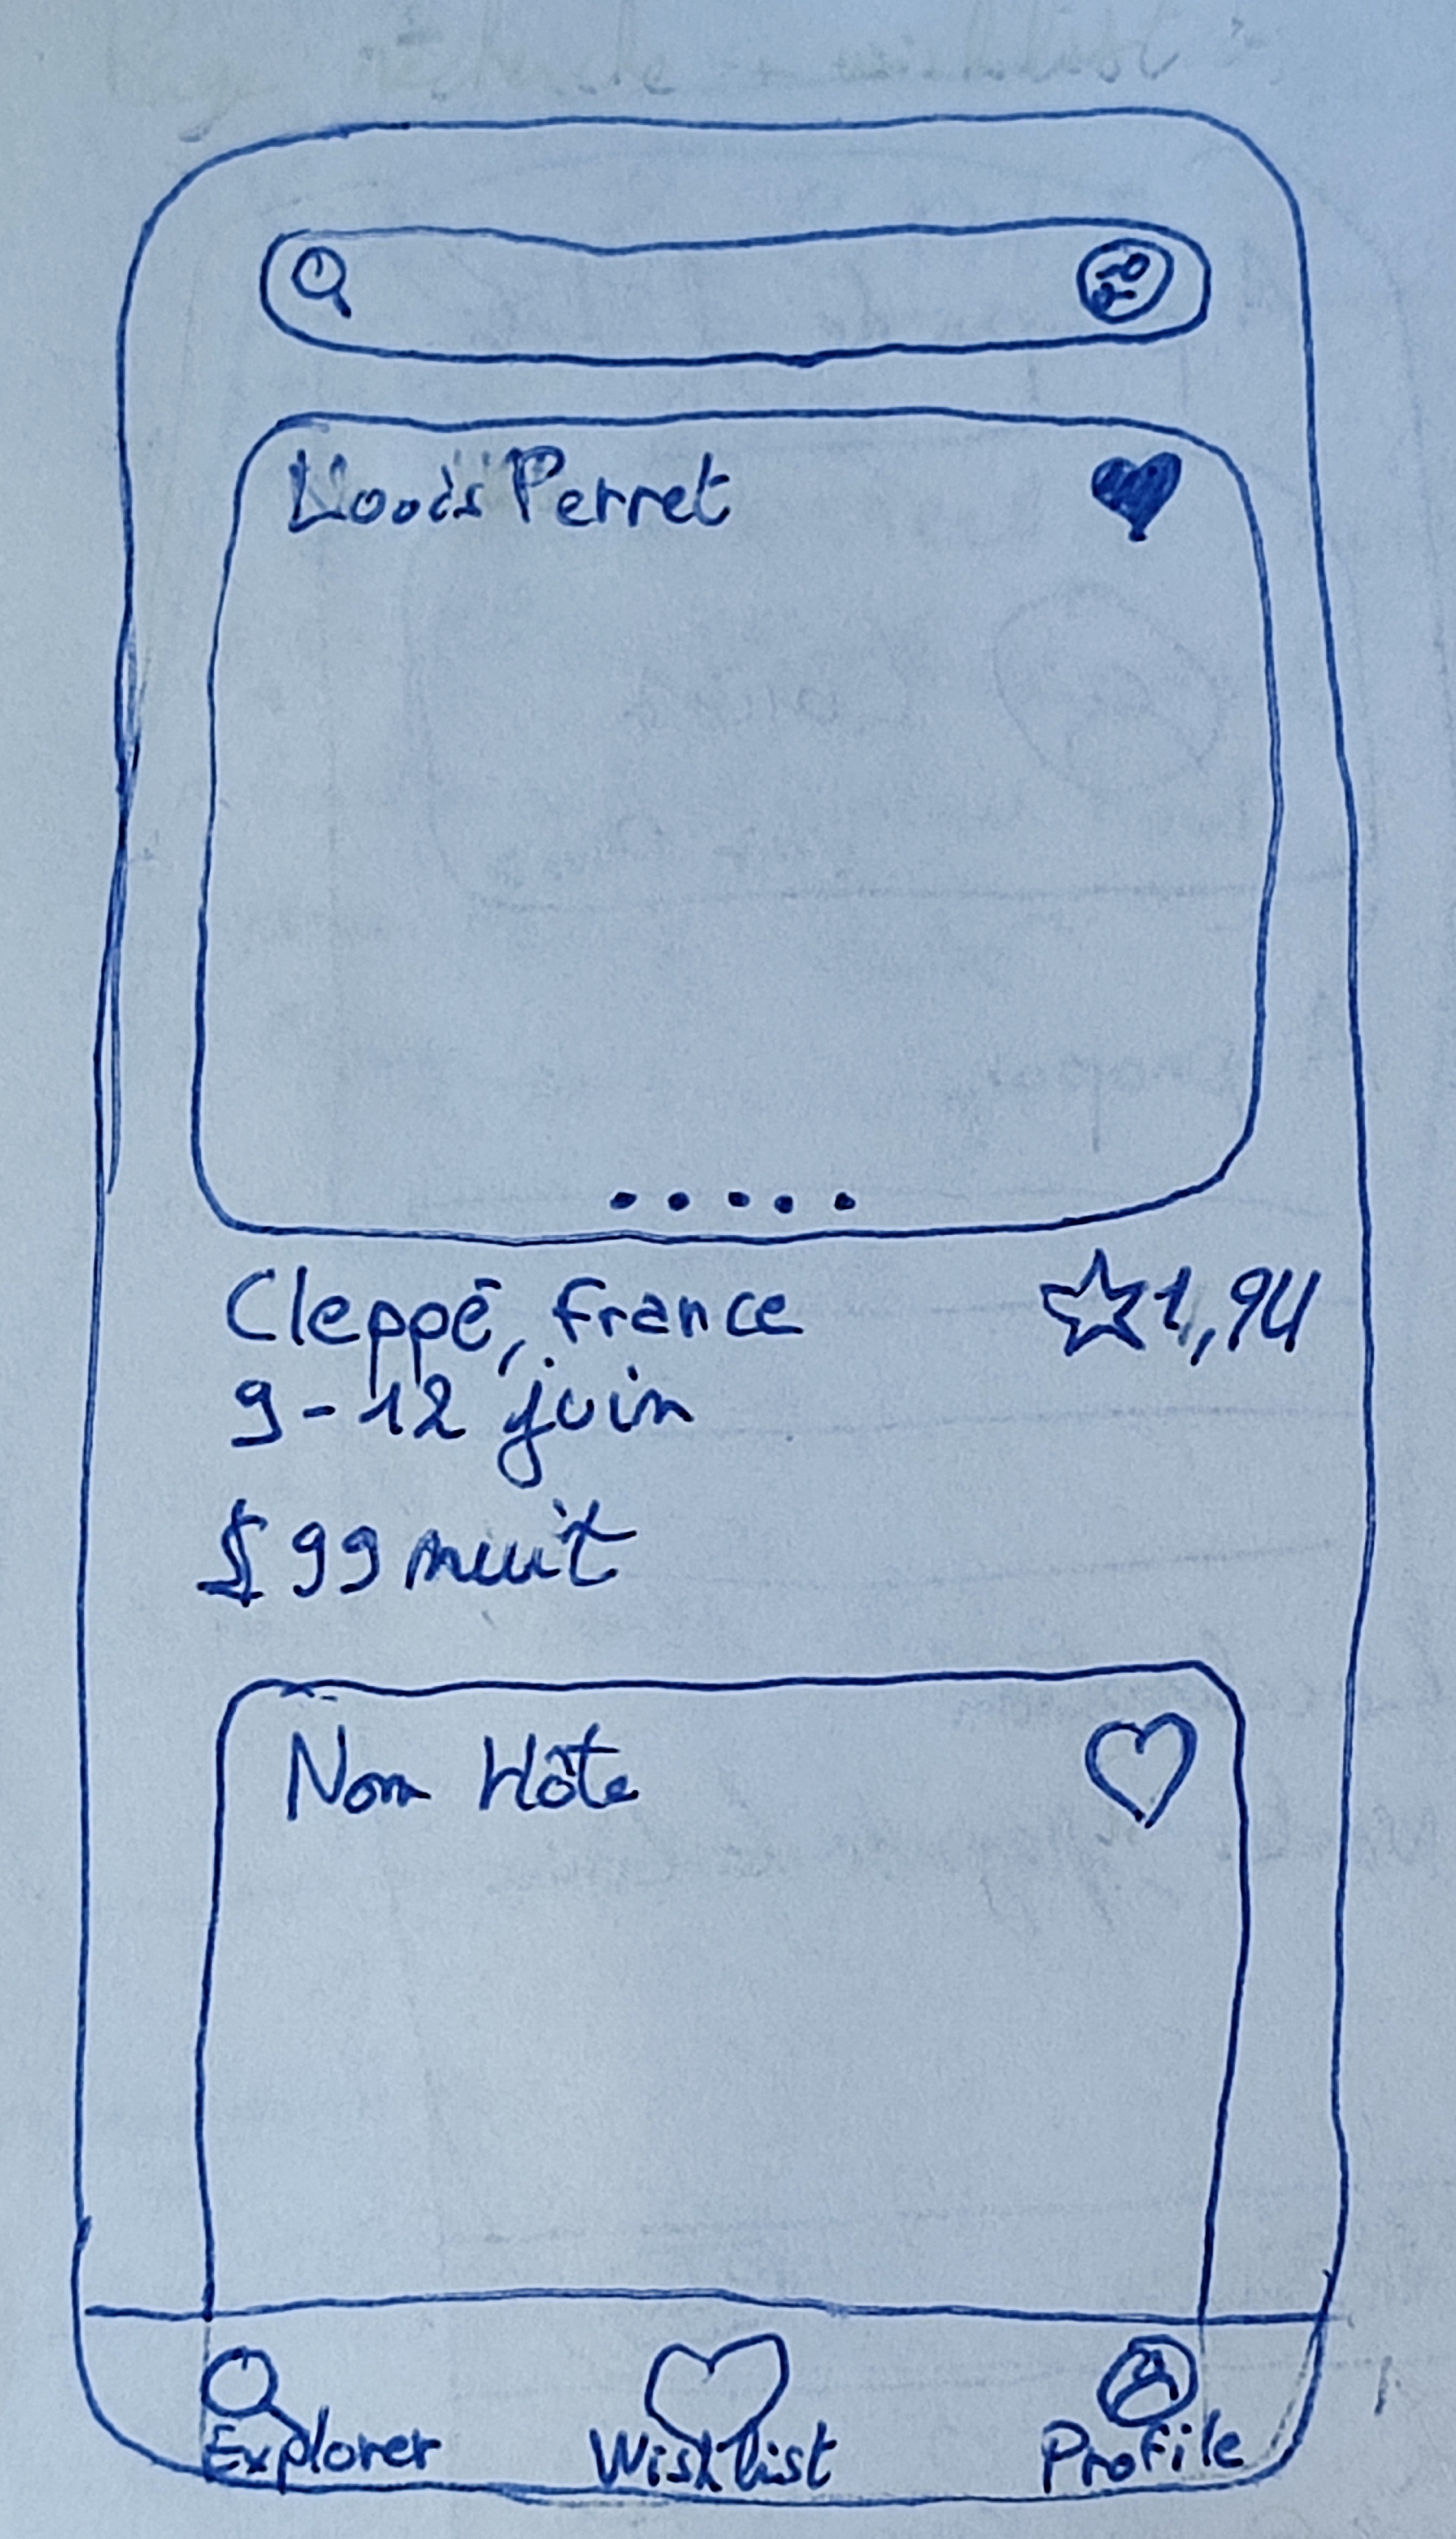 Perret
Cleppé, France
1,94
9-12 juin
$ 99 nuit
Nom Hôte
Explorer
Wishlist
Profile